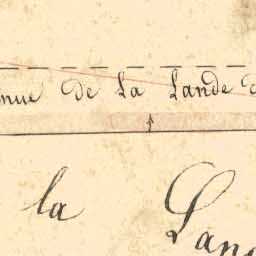 nue de La Lande d
la
Lan